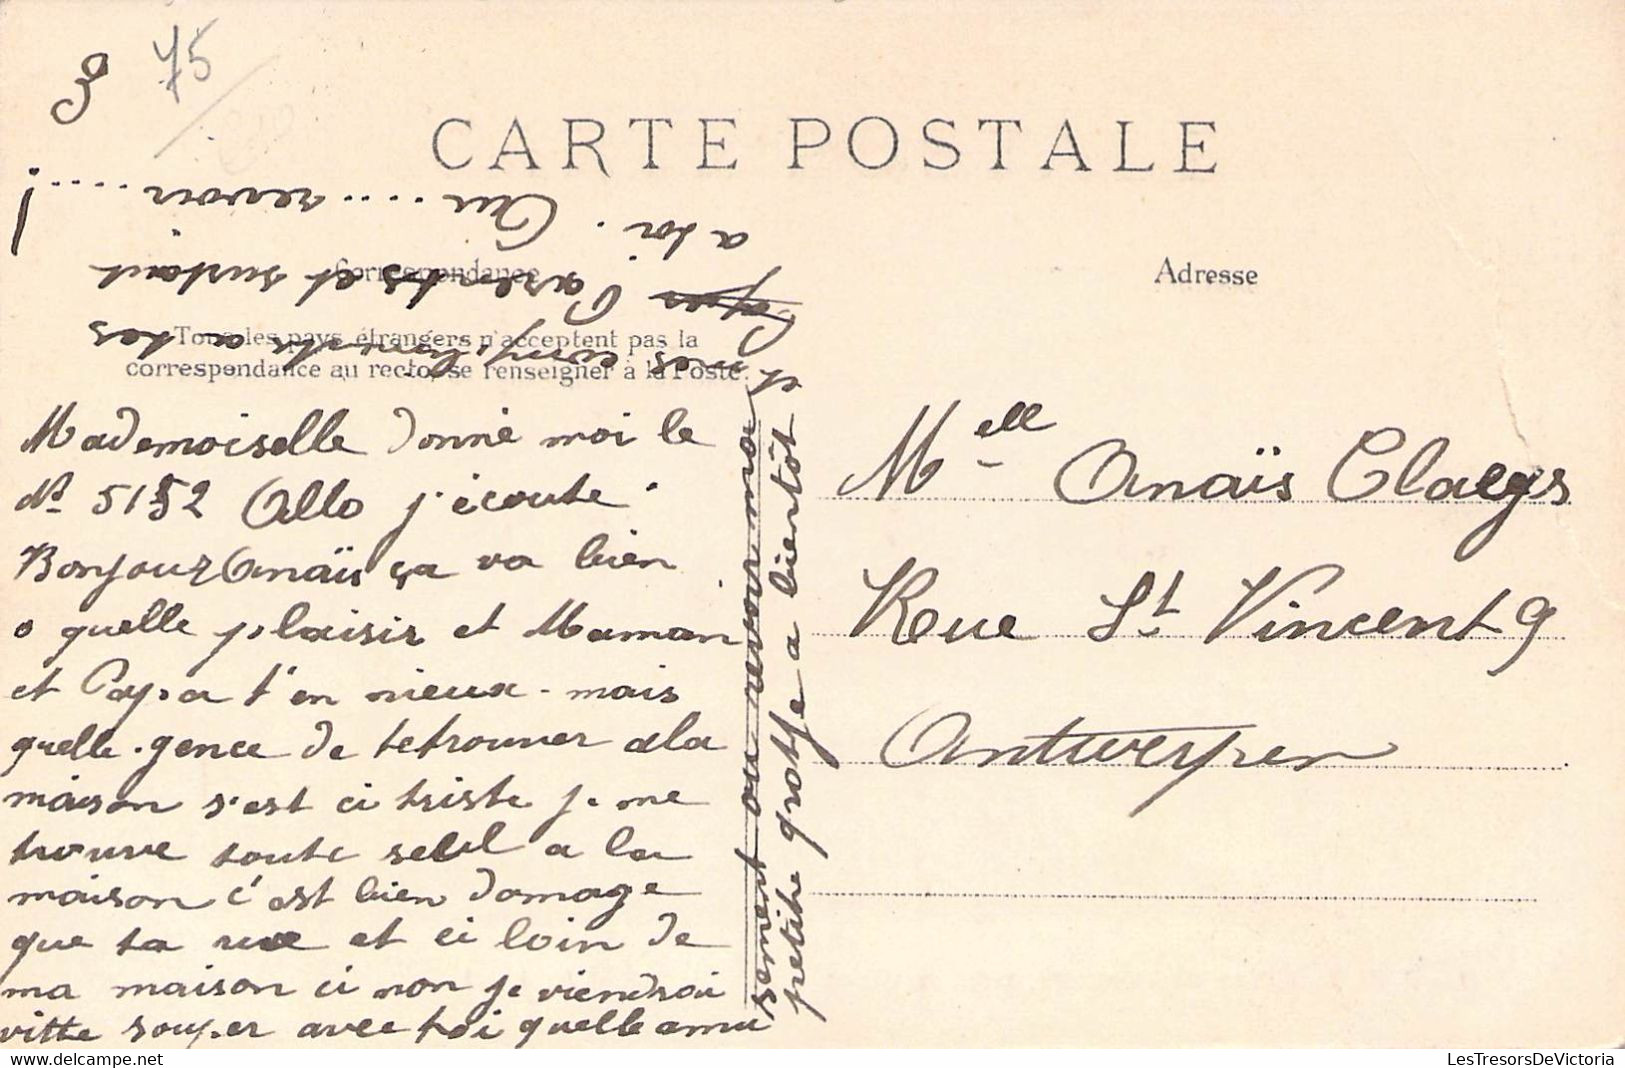 3 75
CARTE POSTALE
Correspondance
Adresse
Tous les pays étrangers n'acceptent pas la
correspondance au recto, se renseigner à la Poste.
Mademoiselle donné moi le
Nº 5152 Allo j'écoute.
Bonjour Anaïs ça va bien
o quelle plaisir et Maman
et Papa t'en mieux - mais
quelle . gence de tetrouver a la
maison s'est ci triste je me
trouve toute seul a la
maison c'est bien domage
que ta rue et ci loin de
ma maison ci non je viendrai
vitte souper avec toi quelle amu
sement au revoir ma
petite grotje a bientôt et
mes compliments a tes
Parents et surtout
a toi. Au .... revoir ..... !
Melle Anaïs Claeys
Rue St. Vincent 9
Antwerpen
LesTresorsDeVictoria